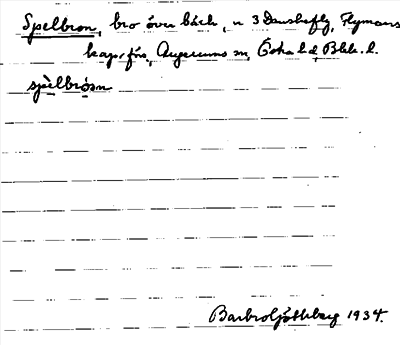 Spelbron, bro över bäck, n 3 Danskefly, Flymans
kap. förs., Augerums sn, Östra hd, Blek. l.
spèlbrón
Barbro Ljöthberg 1934.